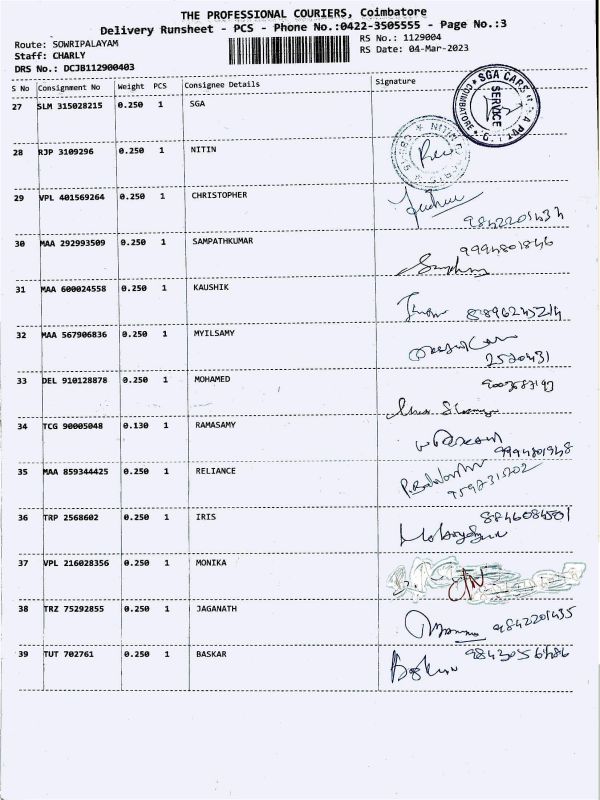 THE PROFESSIONAL COURIERS, Coimbatore
Delivery Runsheet - PCS - Phone No.:0422-3505555 - Page No.:3
Route: SOWRIPALAYAM
RS No.: 1129004
Staff: CHARLY
RS Date: 04-Mar-2023
DRS No.: DCJB112900403
S No Consignment No Weight PCS Consignee Details Signature
27 SLM 315028215 0.250 1 SGA
SGA CARS
COIMBATORE
SERVICE
28 RJP 3109296 0.250 1 NITIN
29 VPL 401569264 0.250 1 CHRISTOPHER
9842201434
30 MAA 292993509 0.250 1 SAMPATHKUMAR
9994801846
31 MAA 600024558 0.250 1 KAUSHIK
32 MAA 567906836 0.250 1 MYILSAMY
2520431
33 DEL 910128878 0.250 1 MOHAMED
34 TCG 90005048 0.130 1 RAMASAMY
9994801948
35 MAA 859344425 0.250 1 RELIANCE
36 TRP 2568602 0.250 1 IRIS
37 VPL 216028356 0.250 1 MONIKA
38 TRZ 75292855 0.250 1 JAGANATH
9842201435
39 TUT 702761 0.250 1 BASKAR